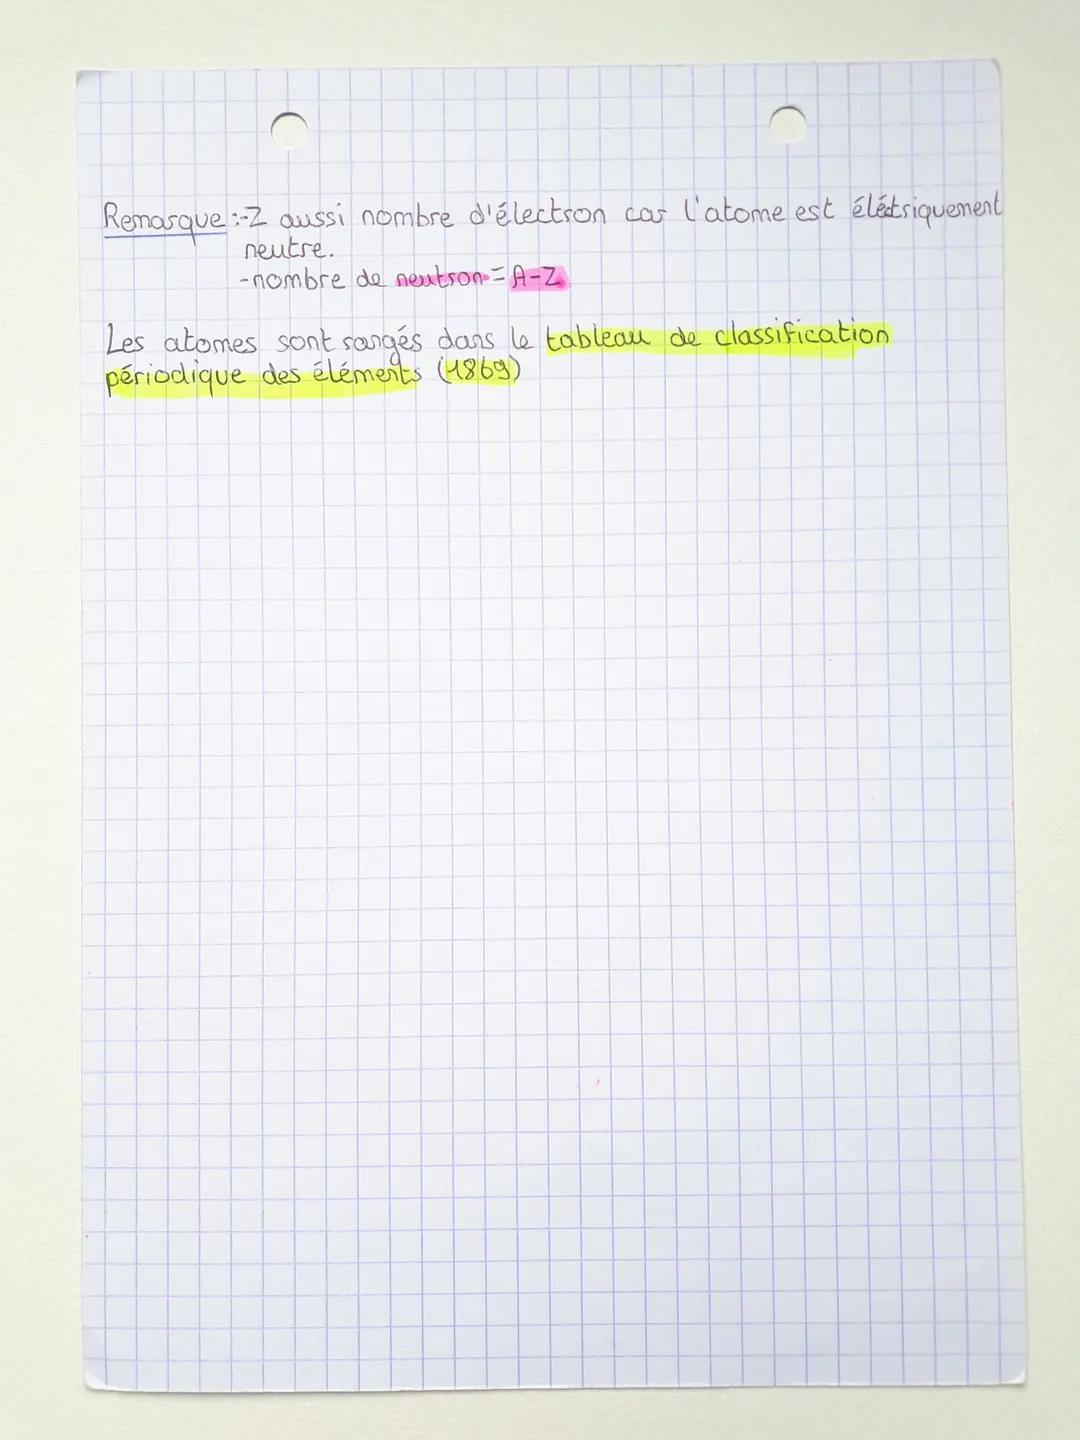 Remarque :-Z aussi nombre d'électron car l'atome est élétriquement
neutre.
-nombre de neutron = A-Z
Les atomes sont rangés dans le tableau de classification
périodique des éléments (1869)